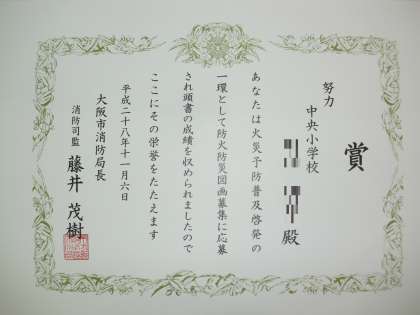 賞
努力
中央小学校
殿
あなたは火災予防普及啓発の
一環として防火防災図画募集に応募
され頭書の成績を収められましたので
ここにその栄誉をたたえます
平成二十八年十一月六日
大阪市消防局長
消防司監 藤井 茂樹